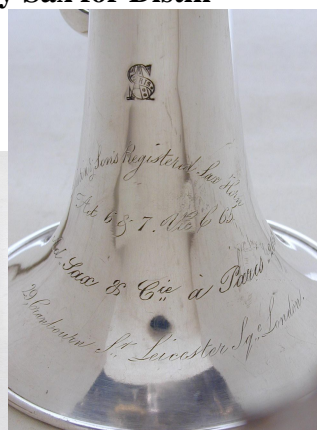 y Sax for Distin
Sons Registered Sax Horn
Act 6 & 7. Vic C 65
Sax & Cie à Paris
Cranbourn St. Leicester Sqe. London.